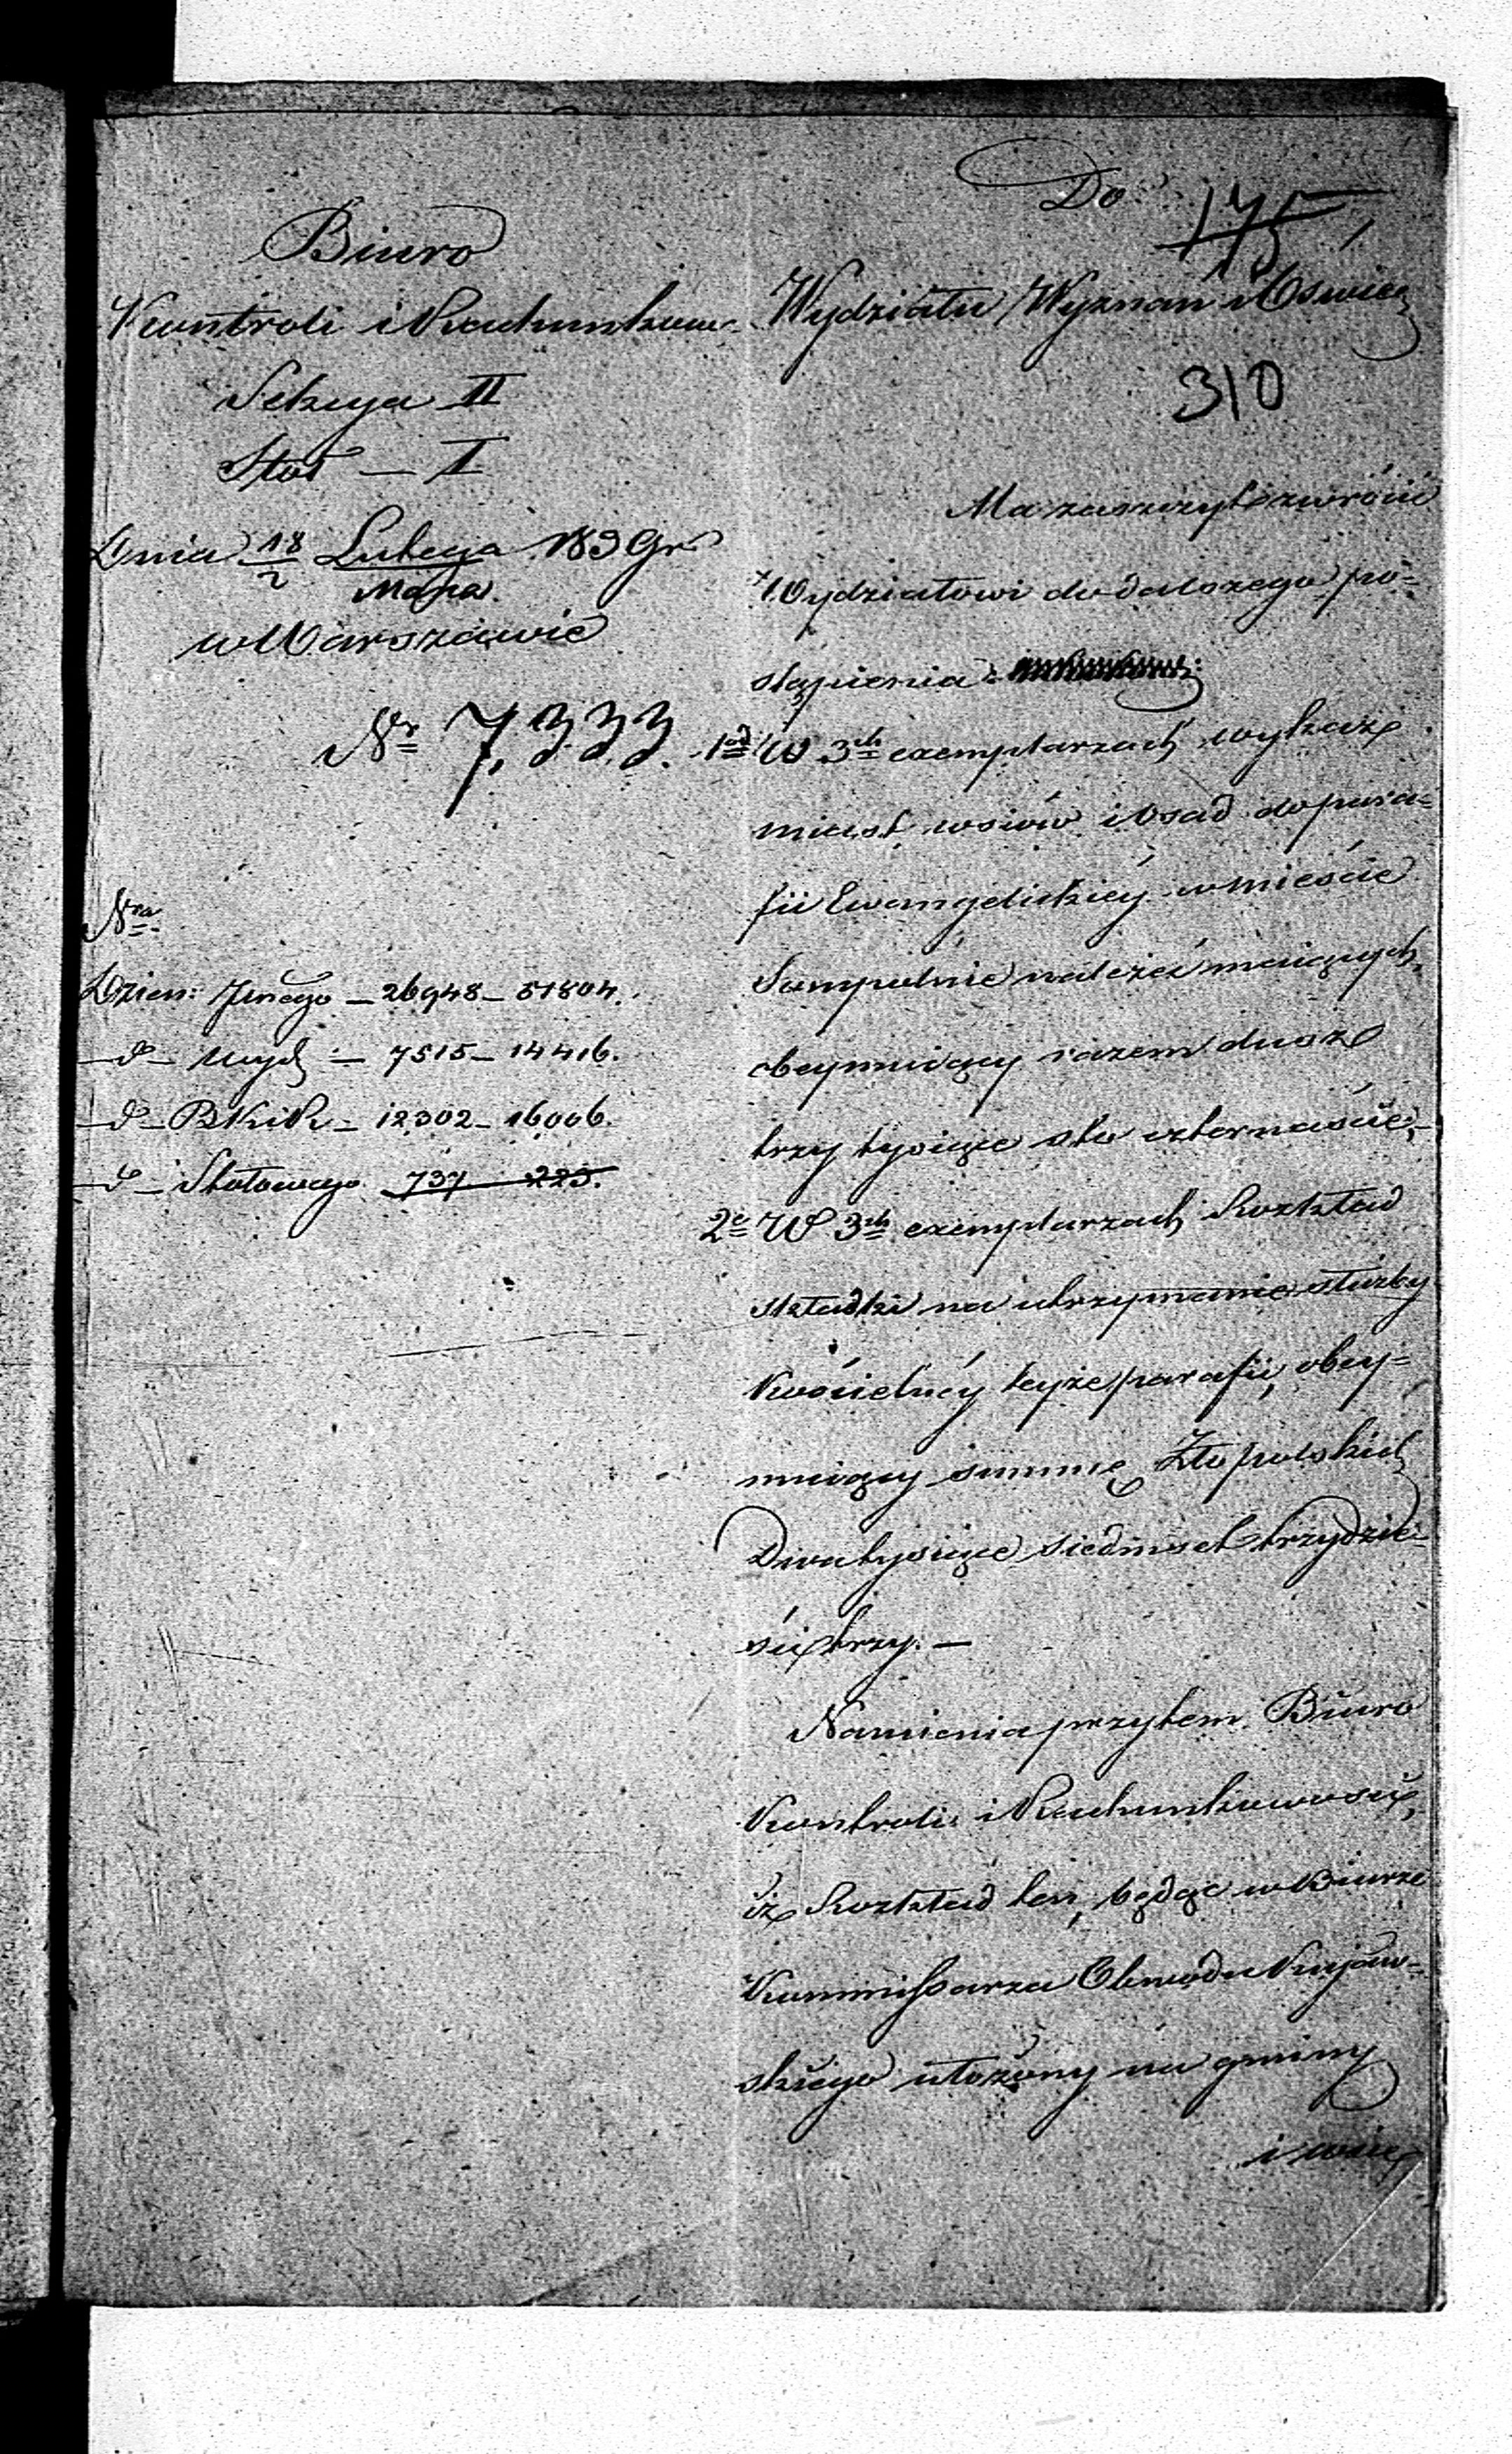 Biuro
Kontroli i Rachunkow:
Sekcya II
Stoł — I
Dnia 18/2 Lutego/Marca 1839 r.
w Warszawie
Nr 7,333.
Nra
Dzien: Jnego — 26948 — 51804.
— d — Wyd: — 7515 — 14416.
— d — BKiR — 12,302 — 16,006.
— d — Stołowego 737 223.
Do
175
Wydziału Wyznań i Oświec
310
Ma zaszczyt zwrócić
Wydziałowi do dalszego po=
stąpienia:
1od W 3ch exemplarzach wykaz
miast, wsiów i osad do para=
fii Ewangelickiey w mieście
Sompolnie należeć maiących,
obeymuiący razem dusz
trzy tysiące sto czternaście,—
2e W 3ch exemplarzach Rozkład
składki na utrzymanie służby
Kościelnéy teyże parafii, obey=
muiący summę Złto polskich
Dwa tysiące siedmset trzydzie=
ści trzy. —
Namienia przytem Biuro
Kontroli i Rachunkowości,
iż Rozkład ten, będąc w Biurze
Kommissarza Obwodu Kujaw=
skiego ułożony na gminy
i wsie